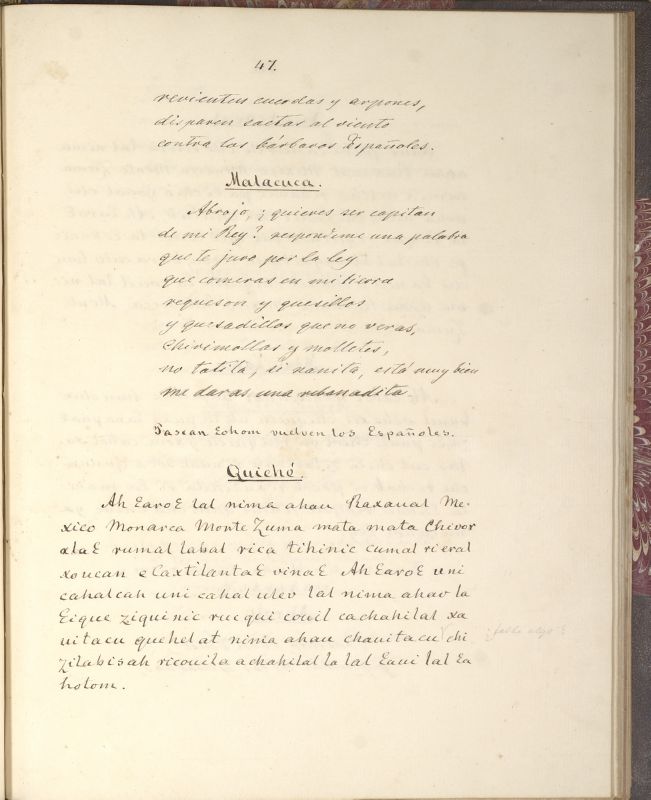 47.
revienten cuerdas y arpones,
disparen saetas al viento
contra los bárbaros Españoles.
Malacuca.
Abrojo, ¿quieres ser capitan
de mi Rey? respondeme una palabra
que te juro por la ley
que comeras en mi tierra
requeson y quesillos
y quesadillos que no veras,
chirimollas y molletes,
no tatita, si nanita, está muy bien
me daras una rebanadita
Pasean Eohom vuelven los Españoles.
Quiché.
Ah EaroE lal nima ahau Raxaual Me-
xico Monarca MonteZuma mata mata Chivor
alaE rumal labal rica tihinic cumal rieral
xoucan elaxtilantaE vinaE Ah EaroE uni
cahalcah uni cahal ulev lal nima ahav la
Eique ziquinic rucqui couil cachahilal xa
uitacu quehelat nima ahau chauitacu chi
zilabisah ricouila achahilal la lal Eaui lal Ea
holom.
falta algo?